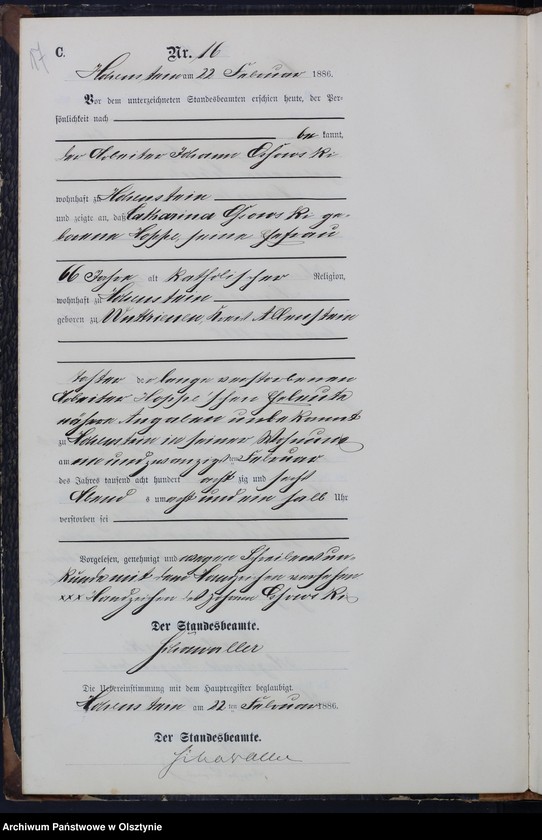 C.
Nr. 16
Hohenstein am 22 Februar 1886.
Vor dem unterzeichneten Standesbeamten erschien heute, der Per-
sönlichkeit nach
be kannt,
der Arbeiter Johann
wohnhaft zu Hohenstein
und zeigte an, daß Catharina ge-
borene Hoppe, seine Ehefrau
66 Jahre alt katholischer Religion,
wohnhaft zu Hohenstein
geboren zu Wuttrienen, Kreis Allenstein
Tochter der lange verstorbenen
Arbeiter Hoppe'schen Eheleute
nähere Angaben unbekannt
zu Hohenstein in seiner Wohnung
am einundzwanzigsten Februar
des Jahres tausend acht hundert acht zig und sechs
Abend s um acht und ein halb Uhr
verstorben sei
Vorgelesen, genehmigt und wegen Schreibensun-
kunde mit dem Handzeichen versehen
xxx Handzeichen des Johann
Der Standesbeamte.
Die Uebereinstimmung mit dem Hauptregister beglaubigt.
Hohenstein am 22 ten Februar 1886.
Der Standesbeamte.
Archiwum Państwowe w Olsztynie